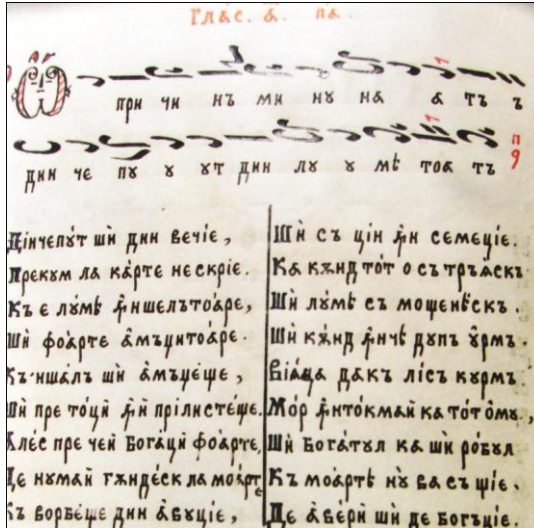 Гла́с. а҃. па.
при чи нъ ми ну на ꙗ тъ ъ
дин че пу у ут дин лу у мѣ тоа тъ
Дінчепꙋ́т шѝ дин вечіе,
Прекум ла ка́рте нескріе.
Къ е лꙋ́мѣ ꙟншелътоа́ре,
Шѝ фоа́рте а҆мъцитоа́ре.
Къ ншалъ шѝ а҆мъце́ще,
Шѝ пре то́ци ꙟй прілисте́ще.
А҆ле́с пре чей Бога́ци фоа́рте,
Де нумай гѫнде́ск ла моа́рте
Къ ворбе́ще дин а҆вуціе,
Шѝ съ цін ꙟн семеціе.
Ка кѫнд то́т о съ тръѧскъ
Шѝ лꙋ́мѣ съ мощенѣ́скъ.
Шѝ кѫ́нд ꙟнчѣ дупъ ꙋ҆рмъ.
Віа́ца дакъ лі́с курмъ.
Мо́р ꙟнто́кмай ка то́т о҆му,
Шѝ Бога́тул ка шѝ ро́бул
Къ моа́ртѣ нꙋ̀ ва съ щіе.
Де а҆верѝ шѝ де Богъціе.